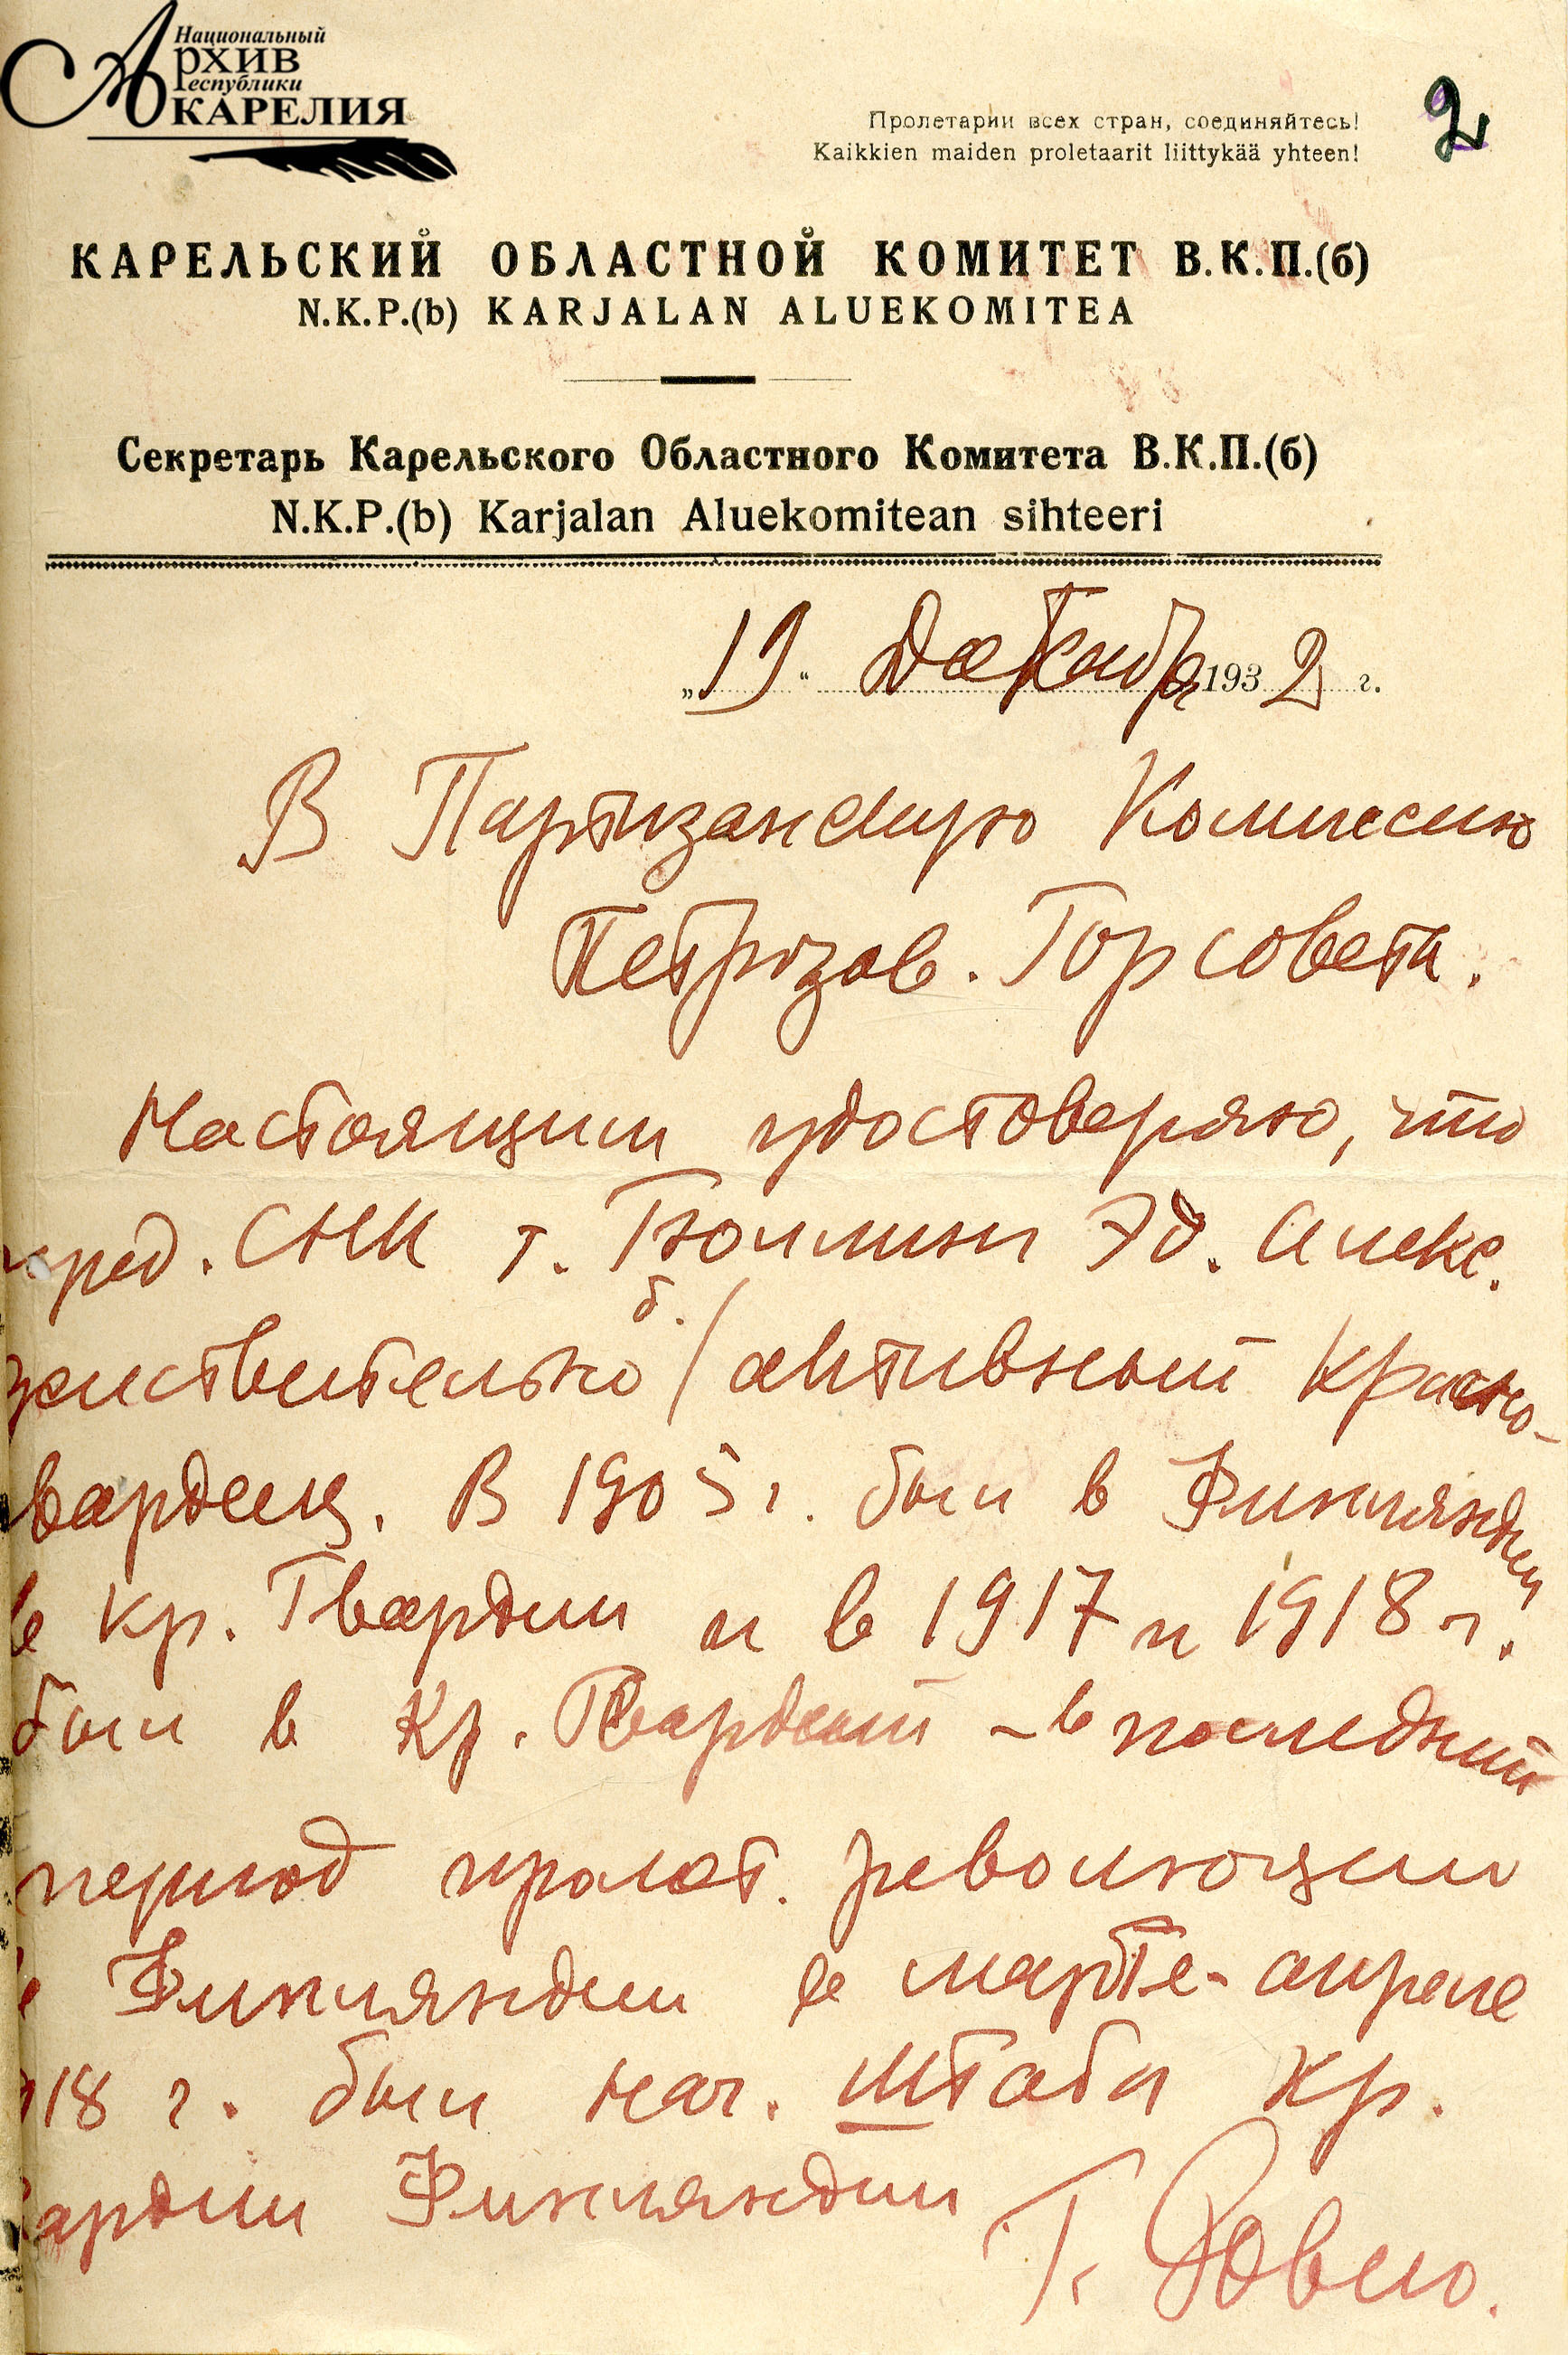 Национальный
Архив
Республики
Карелия
2
Пролетарии всех стран, соединяйтесь!
Kaikkien maiden proletaarit liittykää yhteen!
КАРЕЛЬСКИЙ ОБЛАСТНОЙ КОМИТЕТ В.К.П.(б)
N.K.P.(b) KARJALAN ALUEKOMITEA
Секретарь Карельского Областного Комитета В.К.П.(б)
N.K.P.(b) Karjalan Aluekomitean sihteeri
„19“ Декабря 1932 г.
В Партизанскую Комиссию
Петрозав. Горсовета.
Настоящим удостоверяю, что
пред. СНК т. Гюллинг Эд. Алекс.
б.
действительно / активный красно-
гвардеец. В 1905 г. был в Финляндии
в Кр. Гвардии и в 1917 и 1918 г.
был в Кр. Гвардии – в последний
период пролет. революции
в Финляндии в марте-апреле
918 г. был нач. штаба Кр.
вардии Финляндии
Г. Ровио.